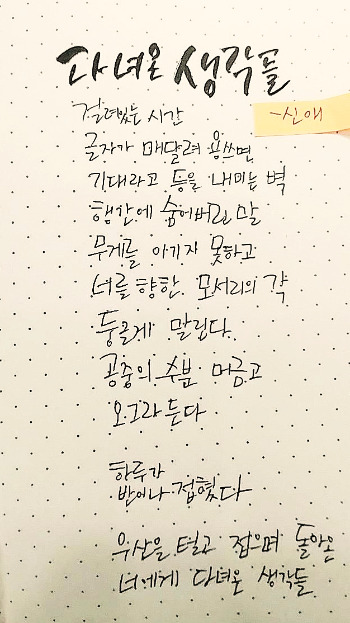 다녀온 생각들
-신애
걸려있는 시간
글자가 매달려 용쓰면
기대라고 등을 내미는 벽
행간에 숨어버린 말
무게를 이기지 못하고
너를 향한 모서리의 각
둥글게 말린다.
공중의 수분 머금고
오그라든다
하루가
반이나 접혔다
우산을 털고 접으며 돌아온
너에게 다녀온 생각들